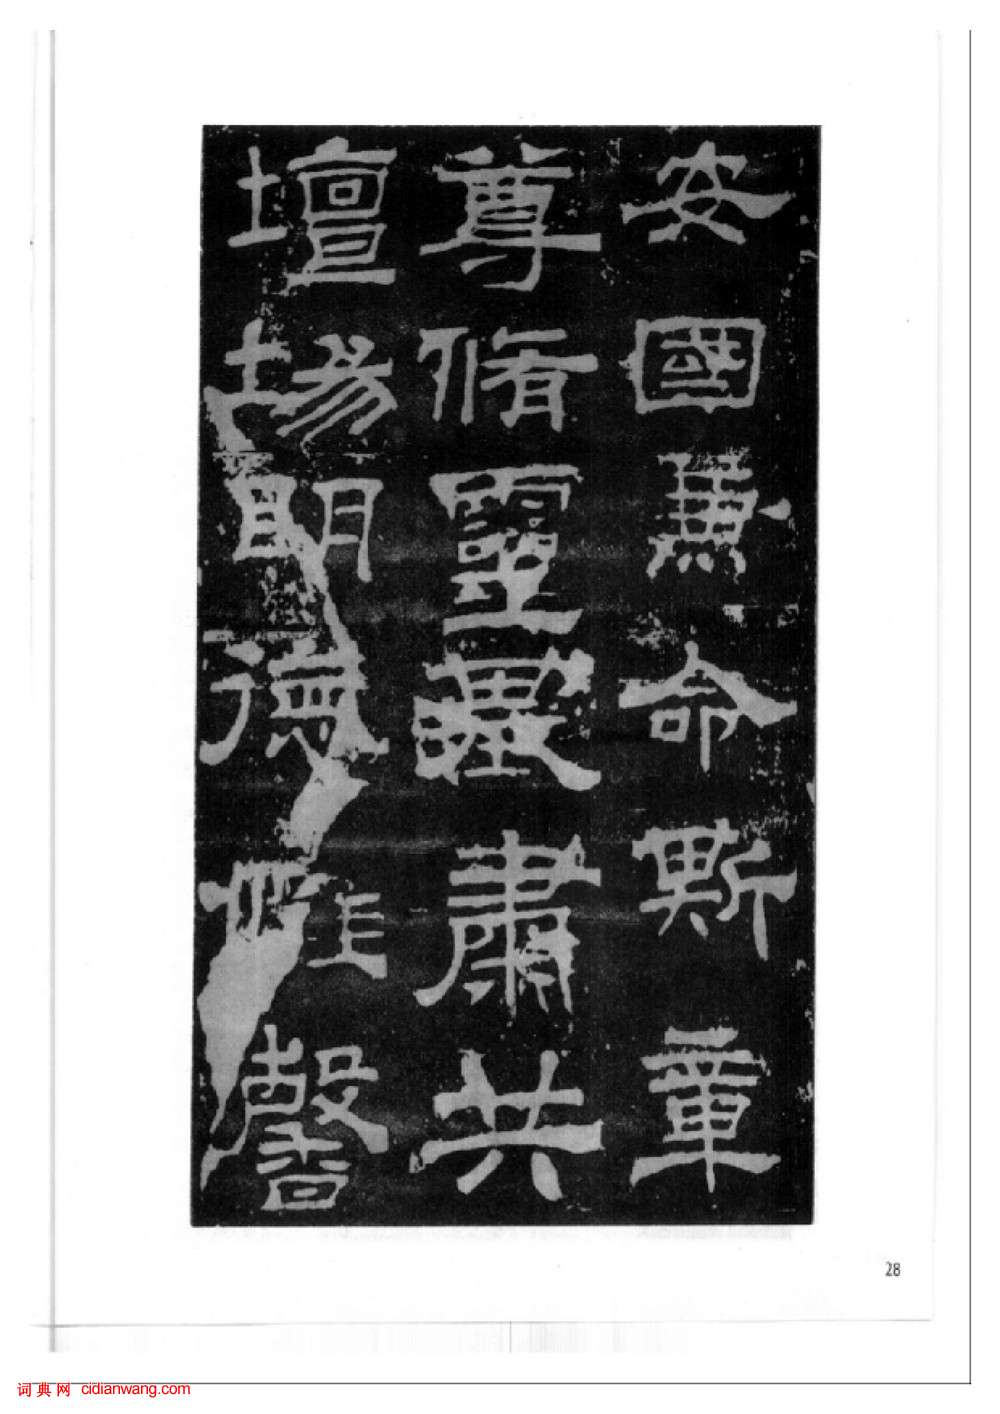 安國兼命斯章
尊脩靈基肅共
壇場明德惟馨
28
词典网 cidianwang.com